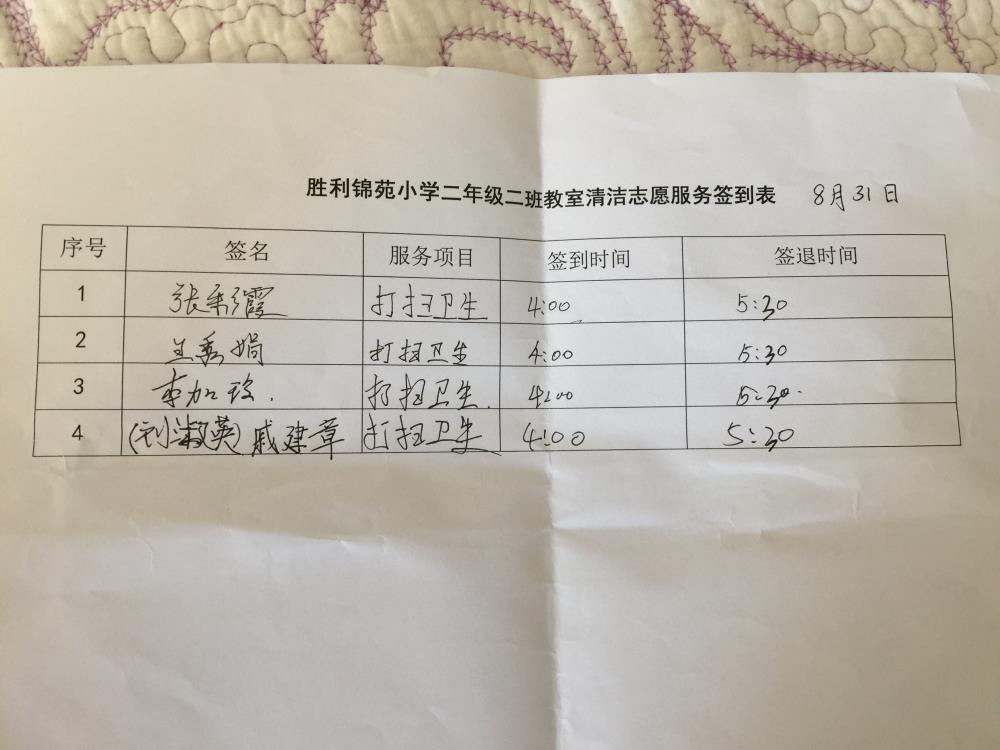 胜利锦苑小学二年级二班教室清洁志愿服务签到表 8月31日
序号 签名 服务项目 签到时间 签退时间
1 张彩霞 打扫卫生 4:00 5:30
2 王秀娟 打扫卫生 4:00 5:30
3 李加玲. 打扫卫生. 4:00 5:30.
4 (刘淑英)戚建章 打扫卫生 4:00 5:30